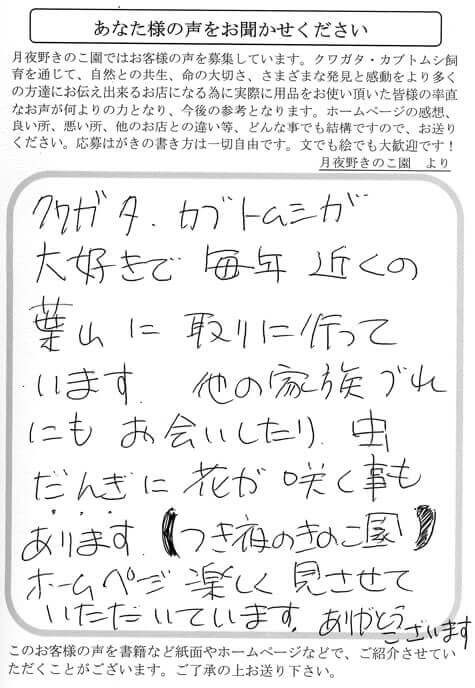 あなた様の声をお聞かせください
月夜野きのこ園ではお客様の声を募集しています。クワガタ・カブトムシ飼
育を通じて、自然との共生、命の大切さ、さまざまな発見と感動をより多く
の方達にお伝え出来るお店になる為に実際に用品をお使い頂いた皆様の率直
なお声が何よりの力となり、今後の参考となります。ホームページの感想、
良い所、悪い所、他のお店との違い等、どんな事でも結構ですので、お送り
ください。応募はがきの書き方は一切自由です。文でも絵でも大歓迎です！
月夜野きのこ園 より
クワガタ．カブトムシが
大好きで 毎年 近くの
葉山に 取りに行って
います． 他の家族づれ
にも お会いしたり．虫
だんぎに 花が 咲く事も
あります．【つき夜のきのこ園】
ホームページ 楽しく 見させて
いただいています．ありがとう
ございます
このお客様の声を書籍など紙面やホームページなどで、ご紹介させてい
ただくことがございます。ご了承の上お送り下さい。